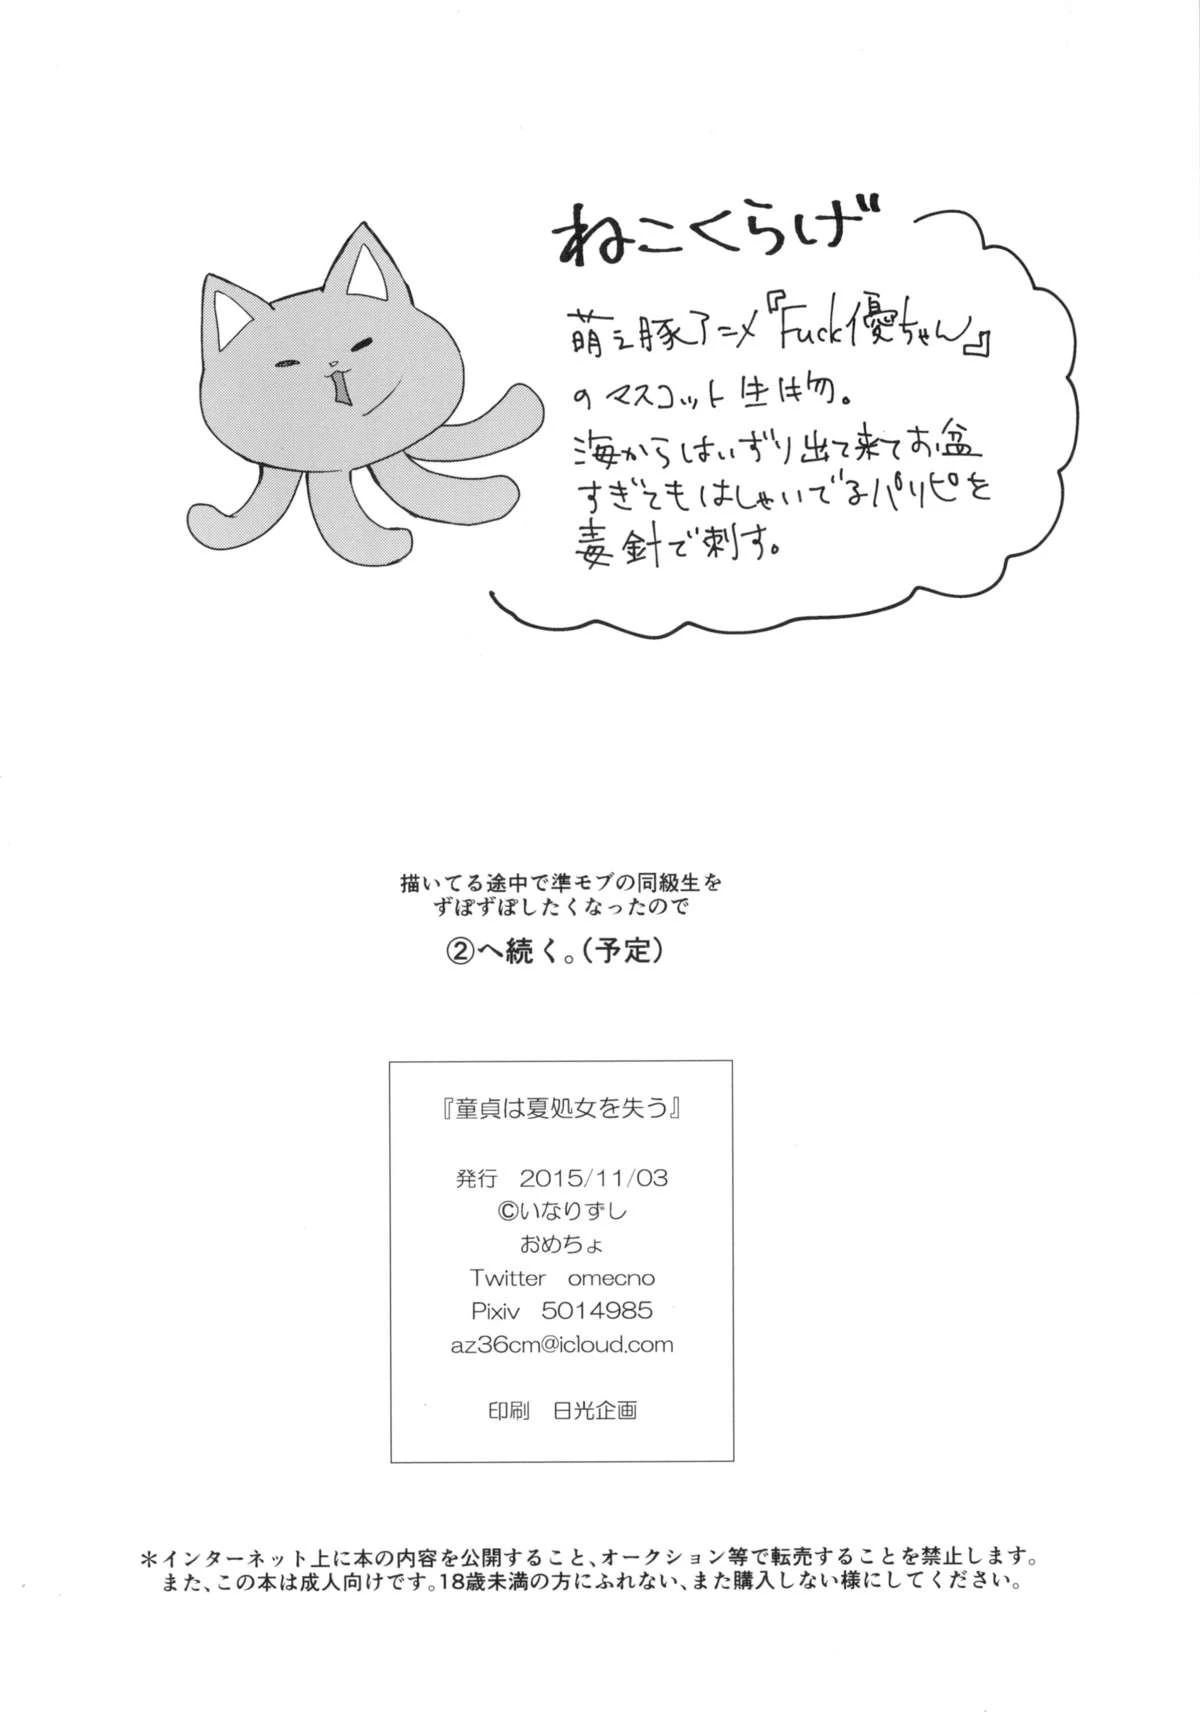 ねこくらげ
萌え豚アニメ『Fuck優ちゃん』
のマスコット生き物。
海からはいずり出て来てお盆
すぎてもはしゃいでるパリピを
毒針で刺す。
描いてる途中で準モブの同級生を
ずぽずぽしたくなったので
②へ続く。(予定)
『童貞は夏処女を失う』
発行　2015/11/03
©いなりずし
おめちょ
Twitter　omecno
Pixiv　5014985
az36cm@icloud.com
印刷　日光企画
＊インターネット上に本の内容を公開すること、オークション等で転売することを禁止します。
また、この本は成人向けです。18歳未満の方にふれない、また購入しない様にしてください。